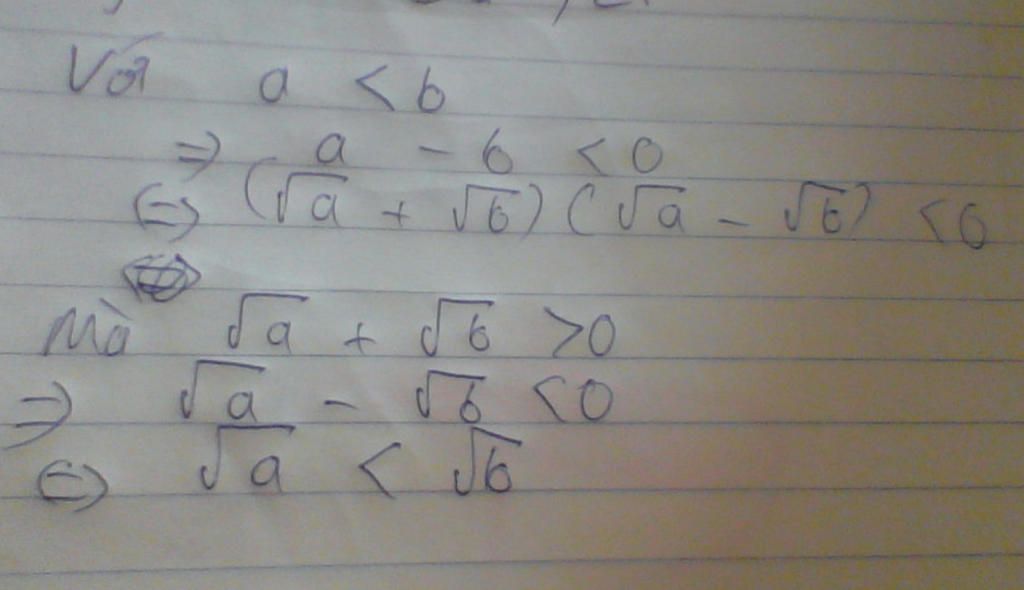 Với a < b
=> a - b < 0
<=> (√a + √b) (√a - √b) < 0
Mà √a + √b > 0
=> √a - √b < 0
<=> √a < √b